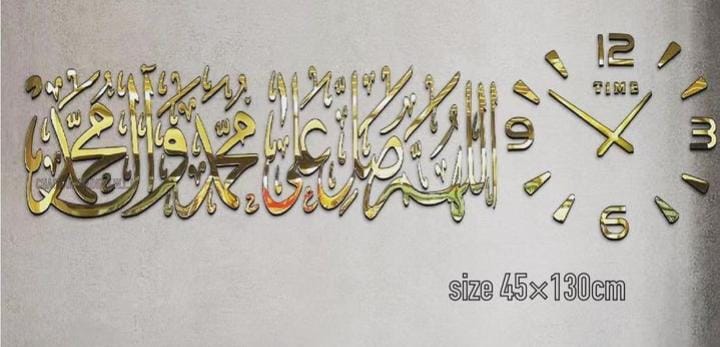 اللهم صل على محمد وآل محمد
12
TIME
9
3
6
size 45×130cm